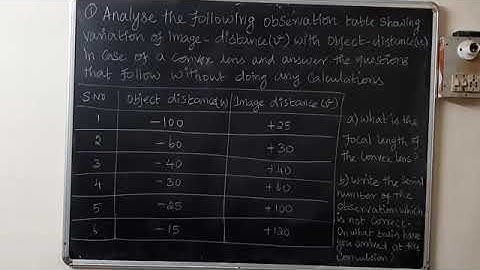 ① Analyse the following observation table showing
variation of Image-distance(v) with Object-distance(u)
In case of a Convex lens and answer the questions
that follow without doing any calculations
S.NO Object distance(u) Image distance(v)
1 -100 +25
2 -60 +30
3 -40 +40
4 -30 +60
5 -25 +100
6 -15 +120
a) what is the
focal length of
the Convex lens?
b) Write the serial
number of the
observation which
is not correct.
On what basis have
you arrived at the
Conclusion?